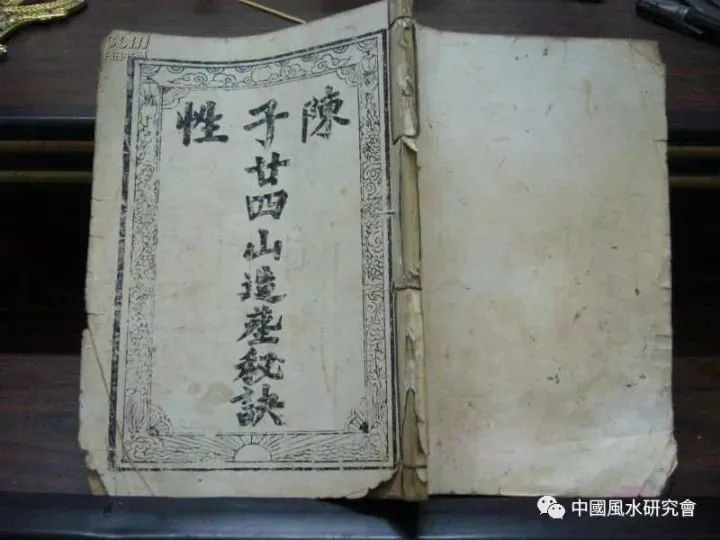 陳子性
廿四山造塟秘訣
com
中國風水研究會